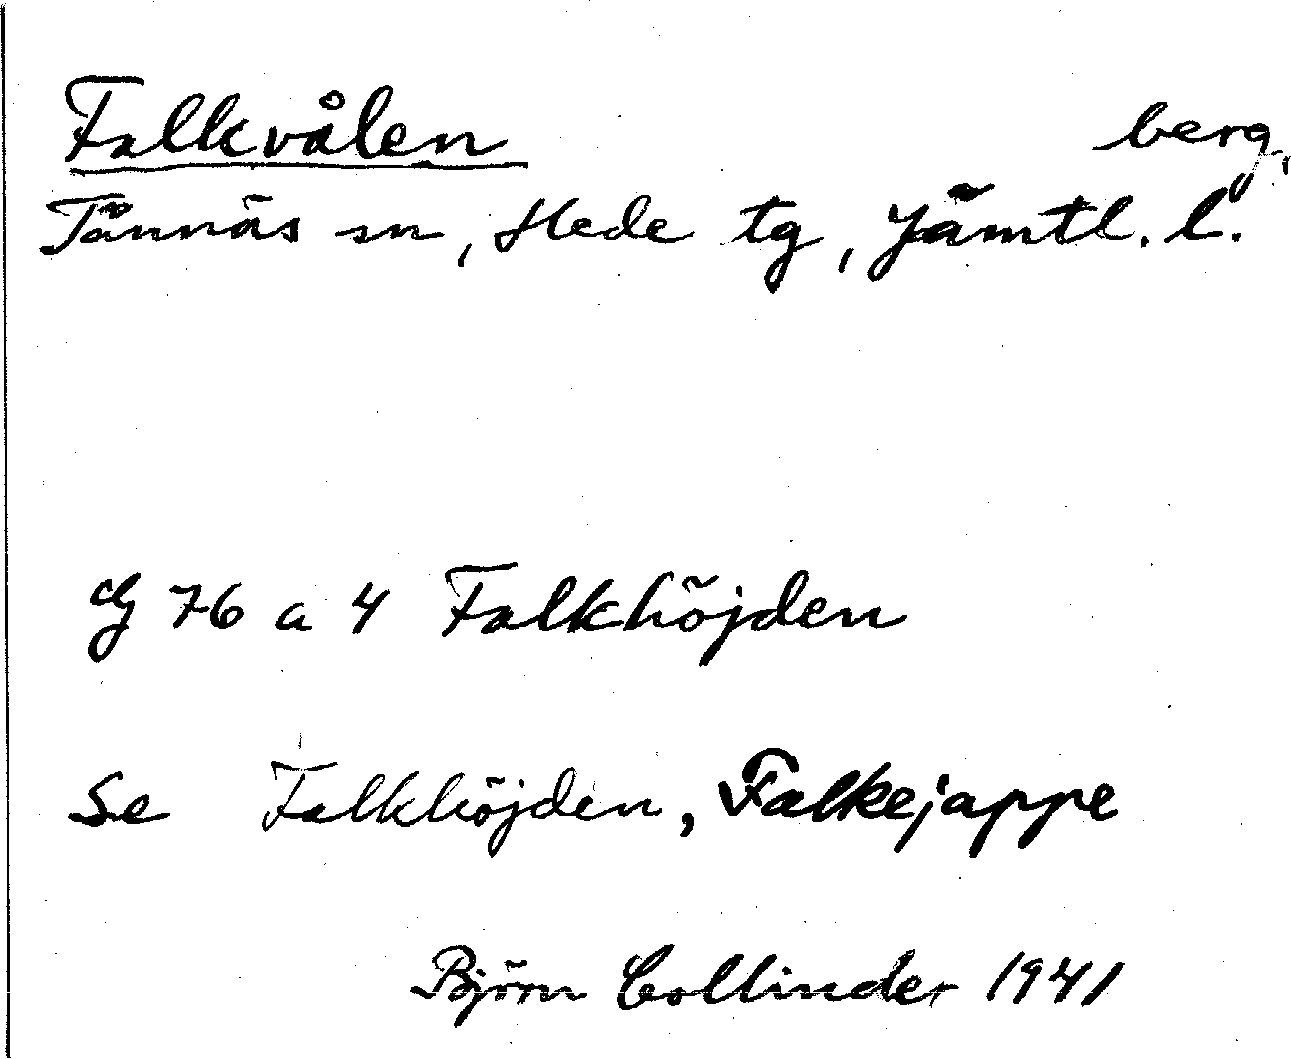 Falkvålen berg,
Tännäs sn, Hede tg, Jämtl. l.
G 76 a 4 Falkhöjden
Se Falkhöjden, Falkejappe
Björn Collinder 1941